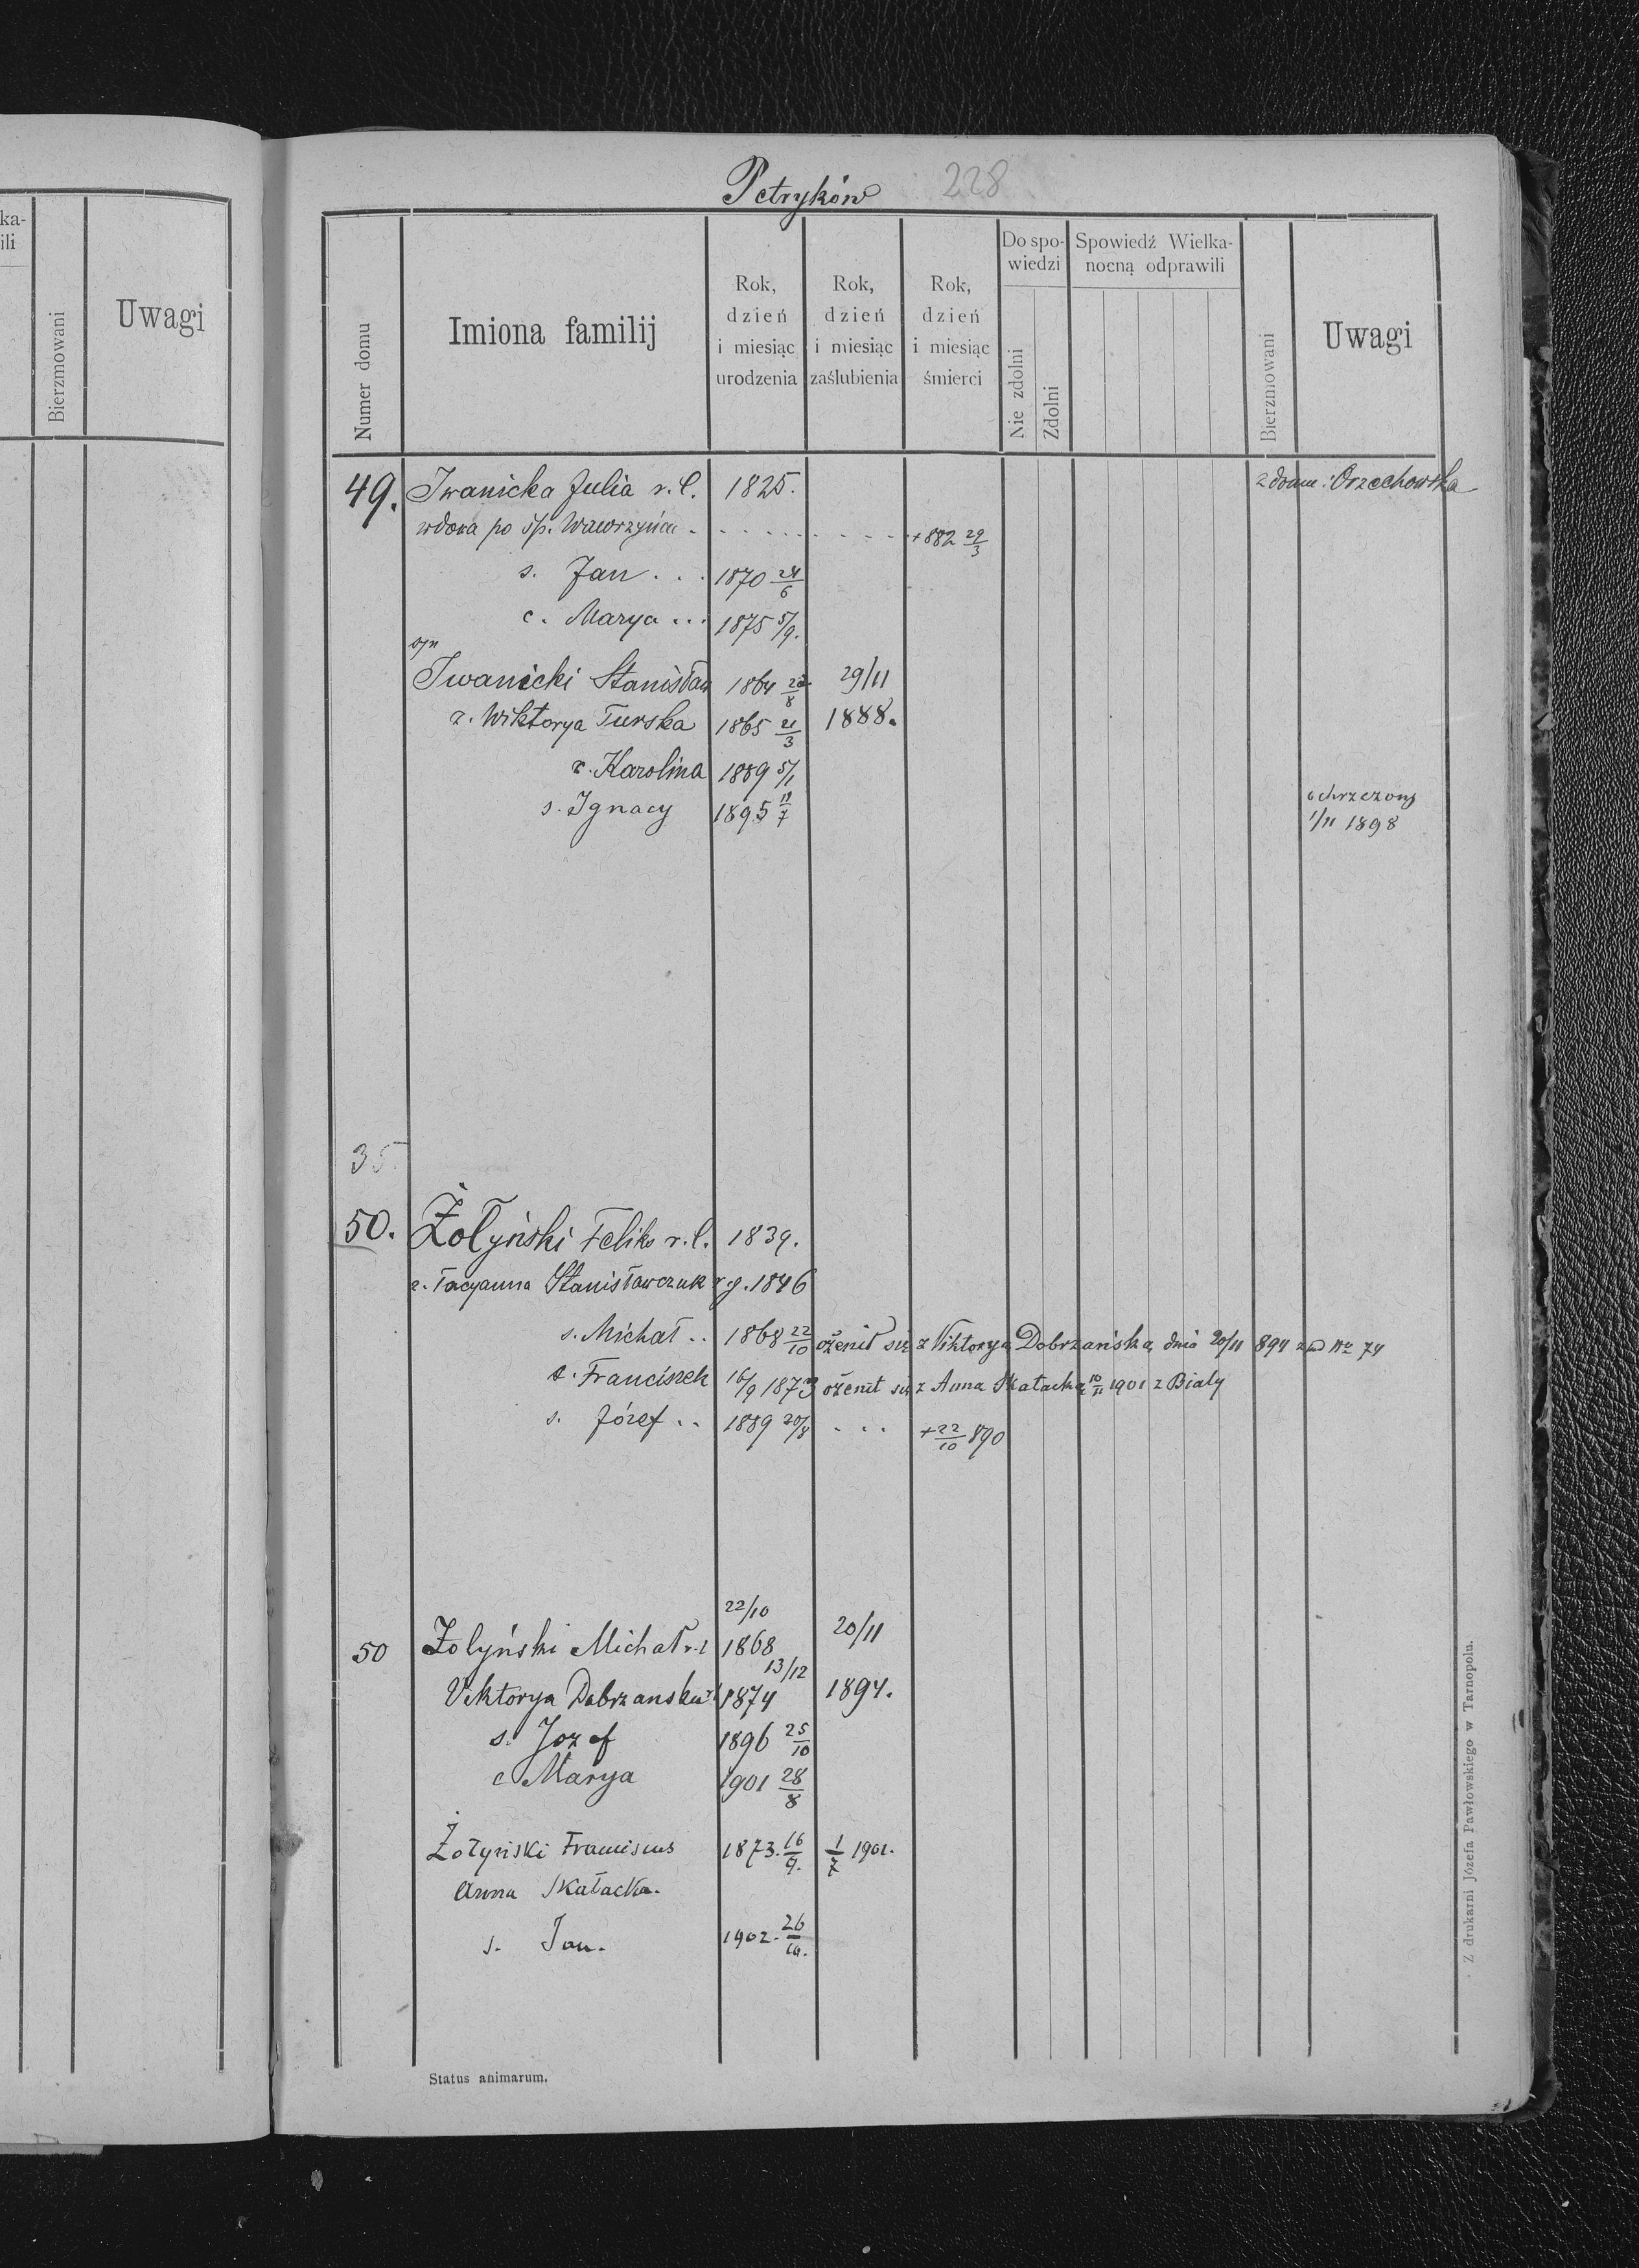 Petryków 228
ka-
ili
Bierzmowani
Uwagi
Numer domu
Imiona familij
Rok, dzień i miesiąc urodzenia
Rok, dzień i miesiąc zaślubienia
Rok, dzień i miesiąc śmierci
Do spo-
wiedzi
Nie zdolni
Zdolni
Spowiedź Wielka-
nocną odprawili
Bierzmowani
Uwagi
49. Iwanicka Julia r.l. 1825. z domu: Orzechowska
wdowa po śp. Wawrzyńcu - . . . . . . . . . +882 29/3
s. Jan . . . 1870 24/6
c. Marya ... 1875 5/9.
syn
Iwanicki Stanisław 1864 22/8 29/11
ż. Wiktorya Turska 1865 21/3 1888.
c. Karolina 1889 5/1
s. Ignacy 1895 19/7 ochrzczony
1/11 1898
35.
50. Żołyński Feliks r.l. 1839.
ż. Tacyanna Stanisławczuk r.g. 1846
s. Michał .. 1868 22/10 ożenił się z Viktoryą Dobrzańską dnia 20/11 894 zad No 74
s. Franciszek 16/9 1873 ożenił się z Anna Skałacką 10/11 1901 z Biały
s. Józef .. 1889 20/8 . . . +22/10 890
22/10
50 Żołyński Michał r.l 1868 20/11
13/12
Viktorya Dobrzanska rl 1874 1894.
s. Jozef 1896 25/10
c Marya 1901 28/8
Żołyński Franciscus 1873. 16/9. 1/7 1901.
Anna Skałacka.
s. Jan. 1902. 26/10.
Status animarum.
Z drukarni Józefa Pawłowskiego w Tarnopolu.